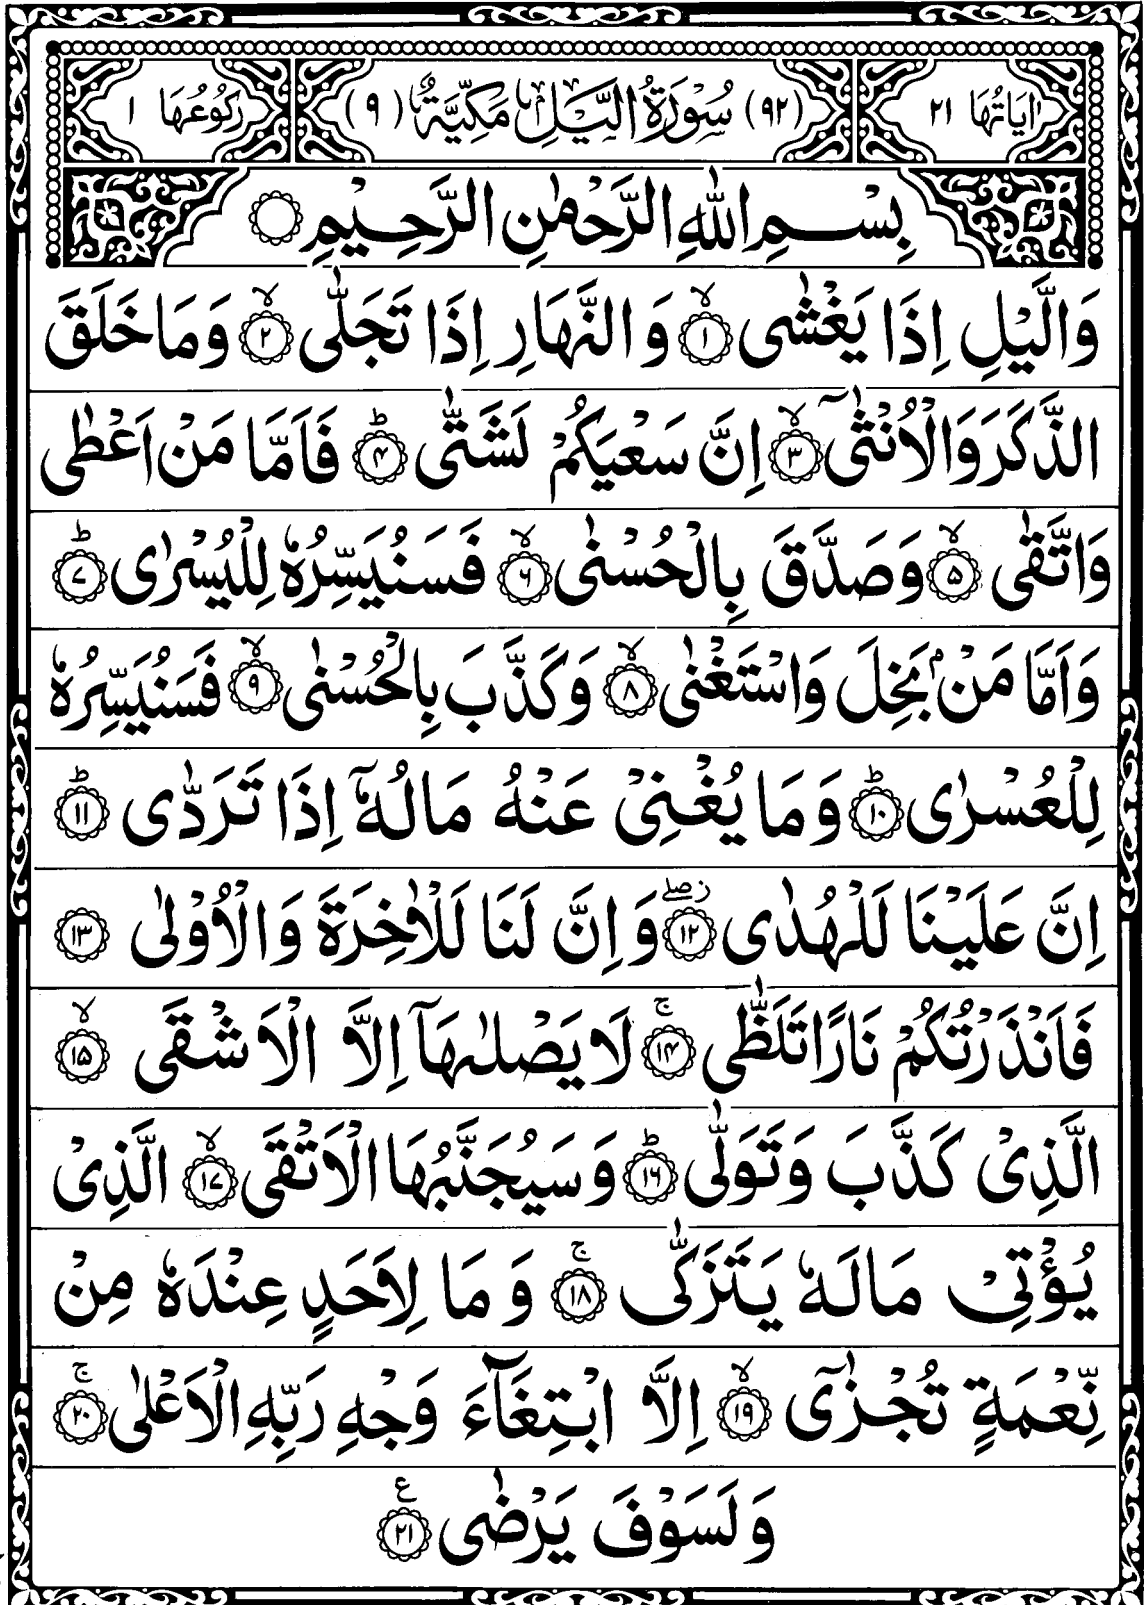 اٰيَاتُهَا ٢١ (٩٢) سُوْرَةُ الَّيْلِ مَكِّيَّةٌ (٩) رُكُوْعُهَا ١
بِسْمِ اللّٰهِ الرَّحْمٰنِ الرَّحِيْمِ
وَالَّيْلِ اِذَا يَغْشٰى ۙ﴿١﴾ وَالنَّهَارِ اِذَا تَجَلّٰى ۙ﴿٢﴾ وَمَا خَلَقَ
الذَّكَرَ وَالْاُنْثٰٓى ۙ﴿٣﴾ اِنَّ سَعْيَكُمْ لَشَتّٰى ؕ﴿۴﴾ فَاَمَّا مَنْ اَعْطٰى
وَاتَّقٰى ۙ﴿۵﴾ وَصَدَّقَ بِالْحُسْنٰى ۙ﴿۶﴾ فَسَنُيَسِّرُهٗ لِلْيُسْرٰى ؕ﴿۷﴾
وَاَمَّا مَنْۢ بَخِلَ وَاسْتَغْنٰى ۙ﴿۸﴾ وَكَذَّبَ بِالْحُسْنٰى ۙ﴿۹﴾ فَسَنُيَسِّرُهٗ
لِلْعُسْرٰى ؕ﴿۱۰﴾ وَمَا يُغْنِيْ عَنْهُ مَالُهٗٓ اِذَا تَرَدّٰى ؕ﴿۱۱﴾
اِنَّ عَلَيْنَا لَلْهُدٰى ۖ﴿۱۲﴾ وَاِنَّ لَنَا لَلْاٰخِرَةَ وَالْاُوْلٰى ﴿۱۳﴾
فَاَنْذَرْتُكُمْ نَارًا تَلَظّٰى ۚ﴿۱۴﴾ لَا يَصْلٰىهَآ اِلَّا الْاَشْقَى ۙ﴿۱۵﴾
الَّذِيْ كَذَّبَ وَتَوَلّٰى ؕ﴿۱۶﴾ وَسَيُجَنَّبُهَا الْاَتْقَى ۙ﴿۱۷﴾ الَّذِيْ
يُؤْتِيْ مَالَهٗ يَتَزَكّٰى ۚ﴿۱۸﴾ وَمَا لِاَحَدٍ عِنْدَهٗ مِنْ
نِّعْمَةٍ تُجْزٰٓى ۙ﴿۱۹﴾ اِلَّا ابْتِغَآءَ وَجْهِ رَبِّهِ الْاَعْلٰى ۚ﴿۲۰﴾
وَلَسَوْفَ يَرْضٰى ﴿۲۱﴾ ع